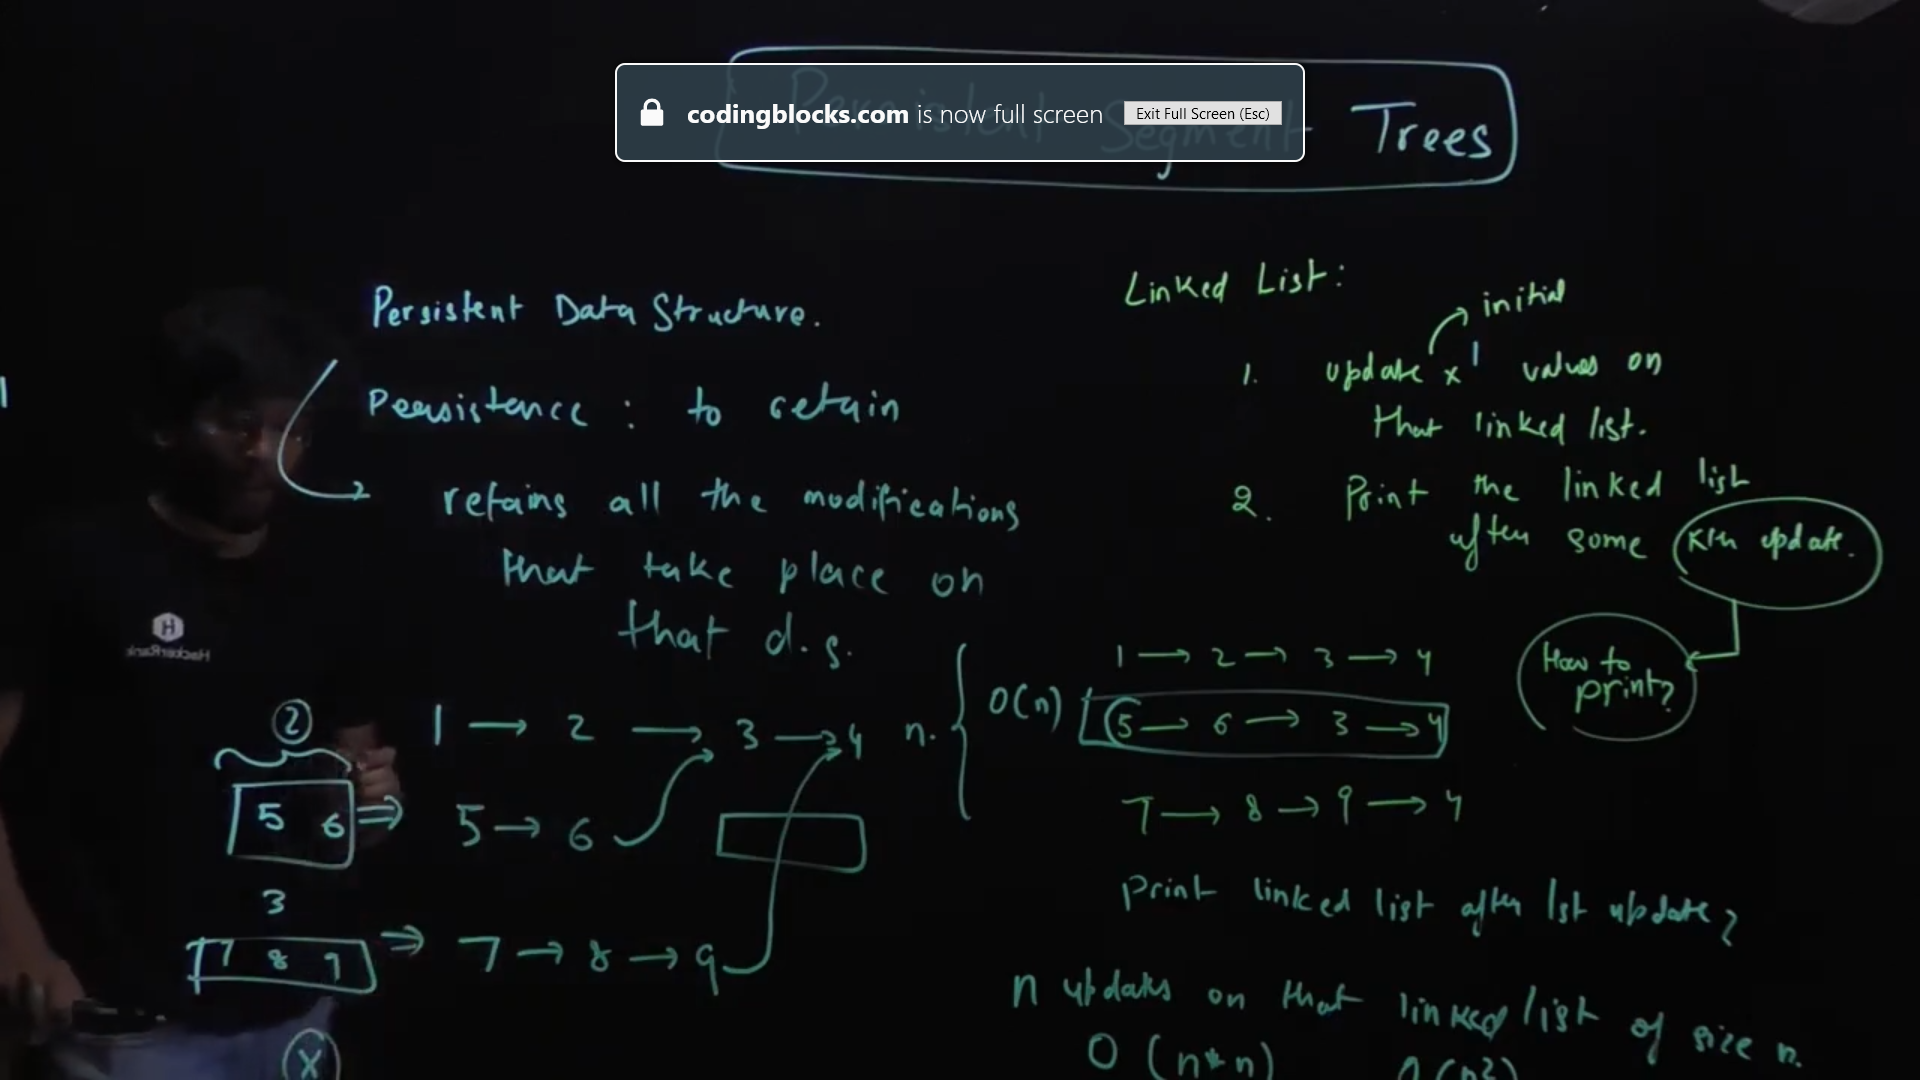 Persistent Segment Trees
codingblocks.com is now full screen Exit Full Screen (Esc)
Persistent Data Structure.
Persistence : to retain
retains all the modifications
that take place on
that d.s.
HackerRank
②
1 → 2 → 3 → 4 n.
5 6 ⇒ 5 → 6
3
7 8 9 ⇒ 7 → 8 → 9
X
Linked List :
initial
1. update x values on
that linked list.
2. Print the linked list
after some Kth update.
How to
print?
1 → 2 → 3 → 4
O(n) 5 → 6 → 3 → 4
7 → 8 → 9 → 4
Print linked list after 1st update?
n updates on that linked list of size n.
O (n*n) O(n2)